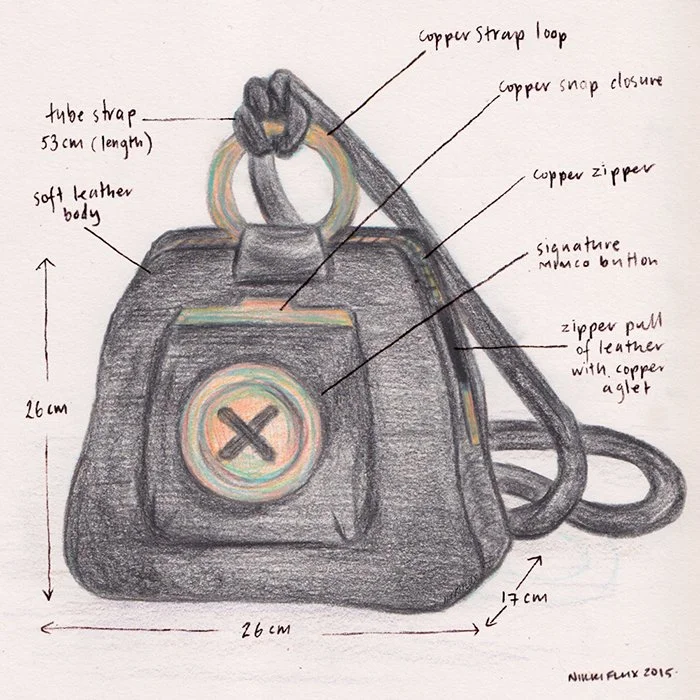 copper strap loop
copper snap closure
tube strap
53cm (length)
copper zipper
soft leather
body
signature
mimco button
zipper pull
of leather
with copper
aglet
26cm
17cm
26cm
NIKKI FLUX 2015.